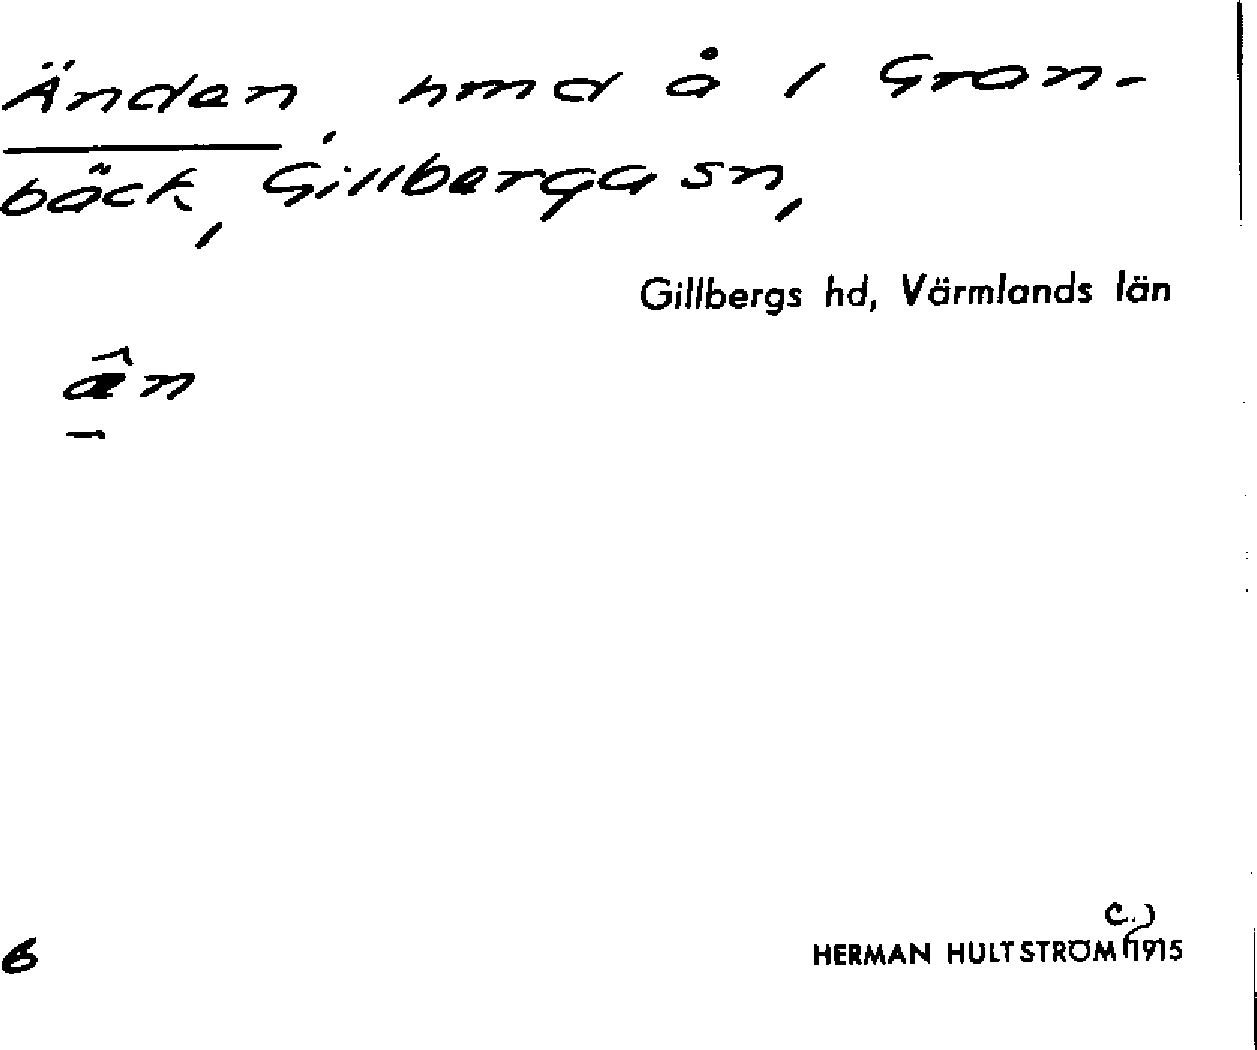 Änden, hmd å 1 Gran-
bäck, Gillberga sn,
Gillbergs hd, Värmlands län
ân
6
c.)
HERMAN HULTSTRÖM (1915